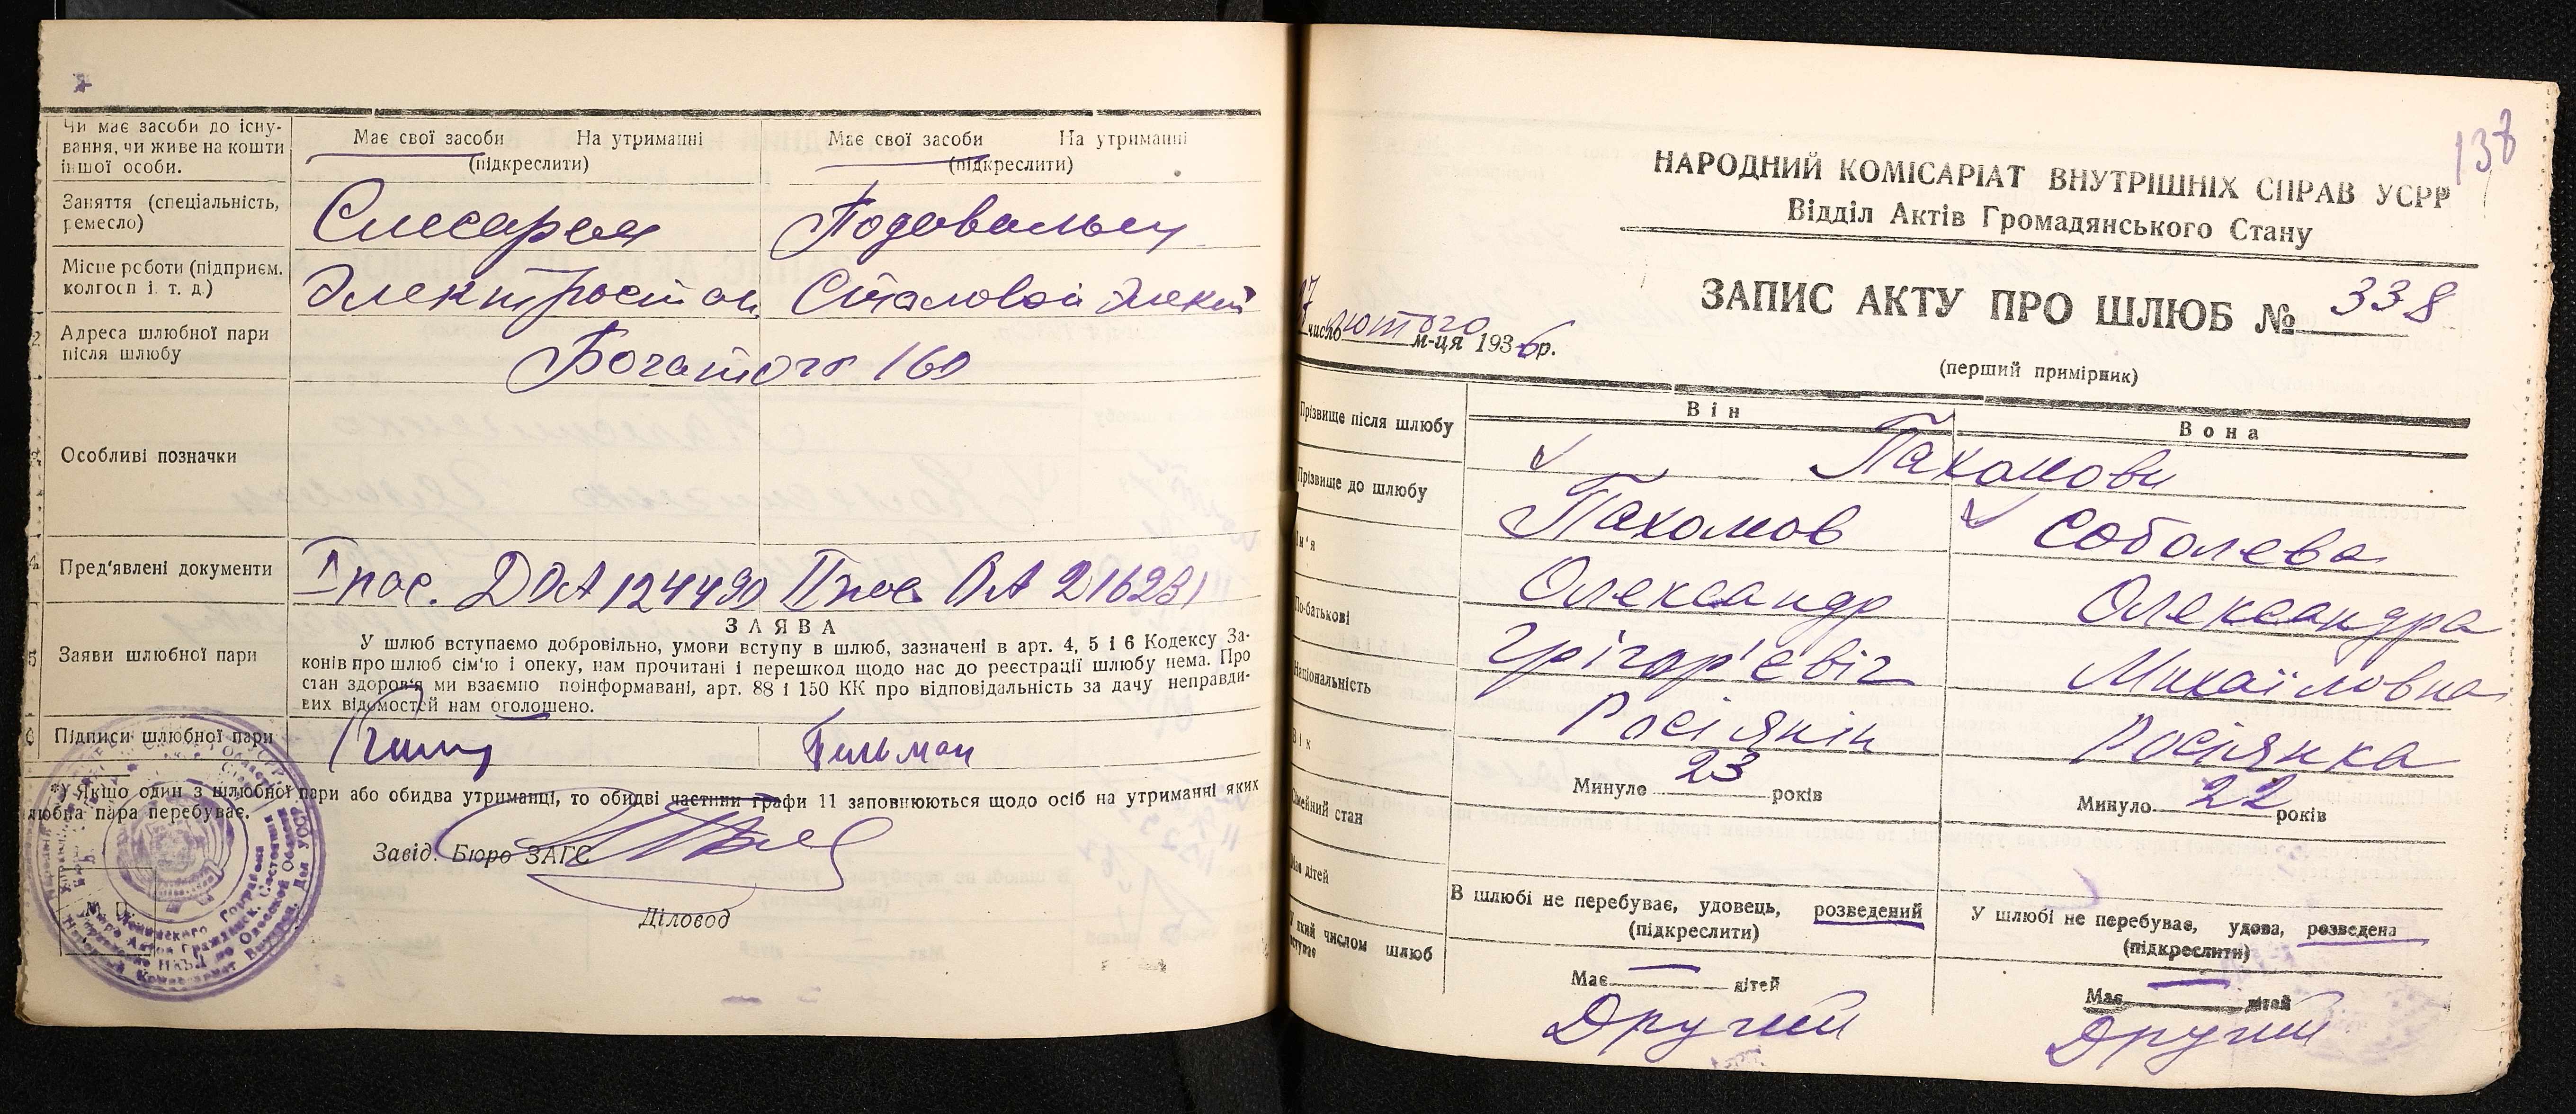 Чи має засоби до існу-
вання, чи живе на кошти
іншої особи.
Має свої засоби На утриманні
(підкреслити)
Має свої засоби На утриманні
(підкреслити)
Заняття (спеціальність,
ремесло)
Слесарем Подавальщ
Місце роботи (підприєм.
колгосп і. т. д.)
Электростан. Сталовой Элект
Адреса шлюбної пари
після шлюбу
Богатого 160
Особливі позначки
Пред'явлені документи
I пас. ДОА 124490 II пас ОА 216231
ЗАЯВА
Заяви шлюбної пари
У шлюб вступаємо добровільно, умови вступу в шлюб, зазначені в арт. 4, 5 і 6 Кодексу За-
конів про шлюб сім'ю і опеку, нам прочитані і перешкод щодо нас до реєстрації шлюбу нема. Про
стан здоров'я ми взаємно поінформавані, арт. 88 і 150 КК про відповідальність за дачу неправди-
вих відомостей нам оголошено.
Підписи шлюбної пари
*) Якщо один з шлюбної пари або обидва утриманці, то обидві частини графи 11 заповнюються щодо осіб на утриманні яких
шлюбна пара перебуває.
Завід. Бюро ЗАГС
Діловод
138
НАРОДНИЙ КОМІСАРІАТ ВНУТРІШНІХ СПРАВ УСРР
Відділ Актів Громадянського Стану
ЗАПИС АКТУ ПРО ШЛЮБ № 338
число лютого м-ця 1936 р.
(перший примірник)
Він Вона
Прізвище після шлюбу
Пахомови
Прізвище до шлюбу
Пахомов Соболева
Ім'я
Олександр Олександра
По-батькові
Грігор'євіч Михаїловна
Національність
Росіянін Росіянка
Вік
Минуло 23 років
Минуло 22 років
Сімейний стан
В шлюбі не перебуває, удовець, розведений
(підкреслити)
У шлюбі не перебуває, удова, розведена
(підкреслити)
Має дітей
Має — дітей
Має — дітей
У який числом шлюб
вступає
Другий Другий